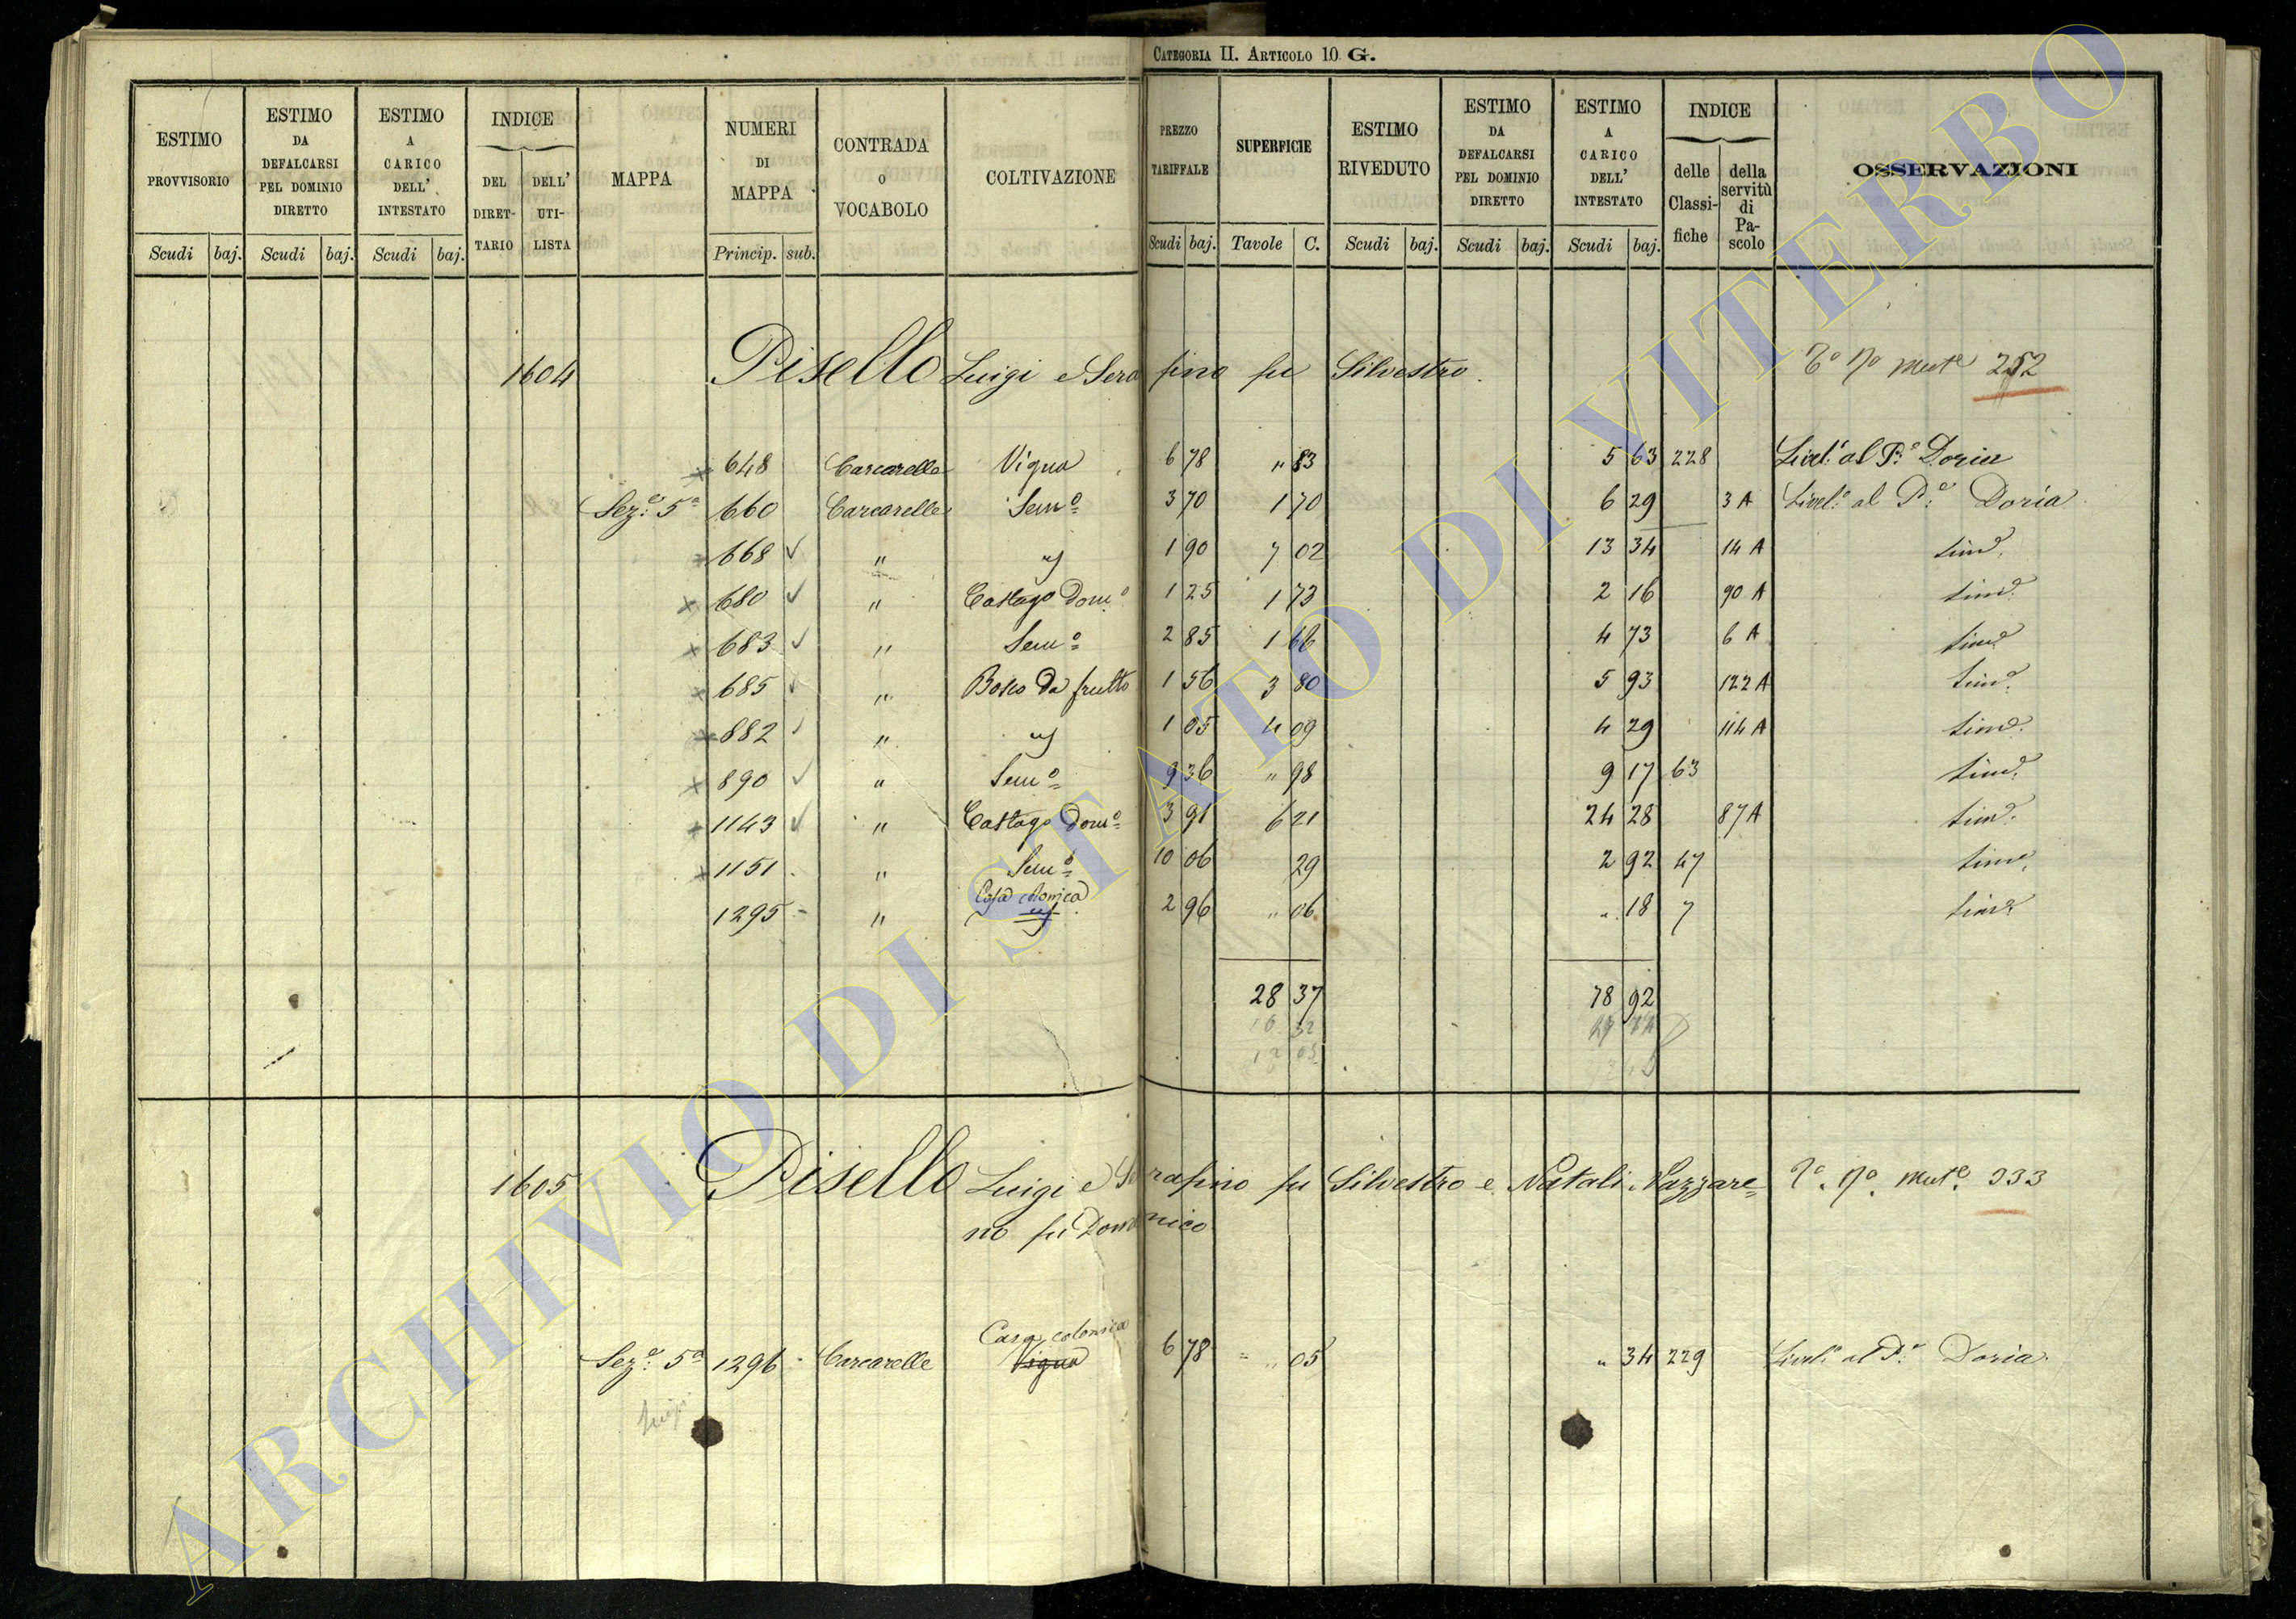 CATEGORIA II. ARTICOLO 10 G.
ESTIMO PROVVISORIO | ESTIMO DA DEFALCARSI PEL DOMINIO DIRETTO | ESTIMO A CARICO DELL' INTESTATO | INDICE DEL DIRETTARIO | DELL' UTILISTA | MAPPA | NUMERI DI MAPPA | CONTRADA O VOCABOLO | COLTIVAZIONE | PREZZO TARIFFALE | SUPERFICIE | ESTIMO RIVEDUTO | ESTIMO DA DEFALCARSI PEL DOMINIO DIRETTO | ESTIMO A CARICO DELL' INTESTATO | INDICE delle Classifiche | della servitù di Pascolo | OSSERVAZIONI
Scudi | baj. | Scudi | baj. | Scudi | baj. | Princip. | sub. | Scudi | baj. | Tavole | C. | Scudi | baj. | Scudi | baj. | Scudi | baj.
1604 Pisello Luigi e Serafino fu Silvestro. 252
648 Carcarelle Vigna 6 78 " 83 5 63 228 Livel. al P.e Doria
Sez.e 5a 660 Carcarelle Sem.o 3 70 1 70 6 29 3 A Livel.o al P.e Doria
668 " " 1 90 7 02 13 34 14 A sim.e
680 " Castag.o Dom.o 1 25 1 73 2 16 90 A sim.e
683 " Sem.o 2 85 1 66 4 73 6 A sim.e
685 " Bosco da frutto 1 56 3 80 5 93 122 A sim.e
882 " " 1 05 4 09 4 29 114 A sim.e
890 " Sem.o 9 36 " 98 9 17 63 sim.e
1143 " Castag.o Dom.o 3 91 6 21 24 28 87 A sim.e
1151 " Sem.o 10 06 29 2 92 47 sim.e
Casa colonica
1295 " 2 96 " 06 " 18 7 sim.e
28 37 78 92
16 32
12 05
1605 Pisello Luigi e Serafino fu Silvestro e Natali Nazzare= 333
no fu Domenico
Casa colonica
Sez.e 5a 1296 Carcarelle Vigna 6 78 " " 05 " 34 229 Livel.o al P.e Doria.
Luigi
ARCHIVIO DI STATO DI VITERBO